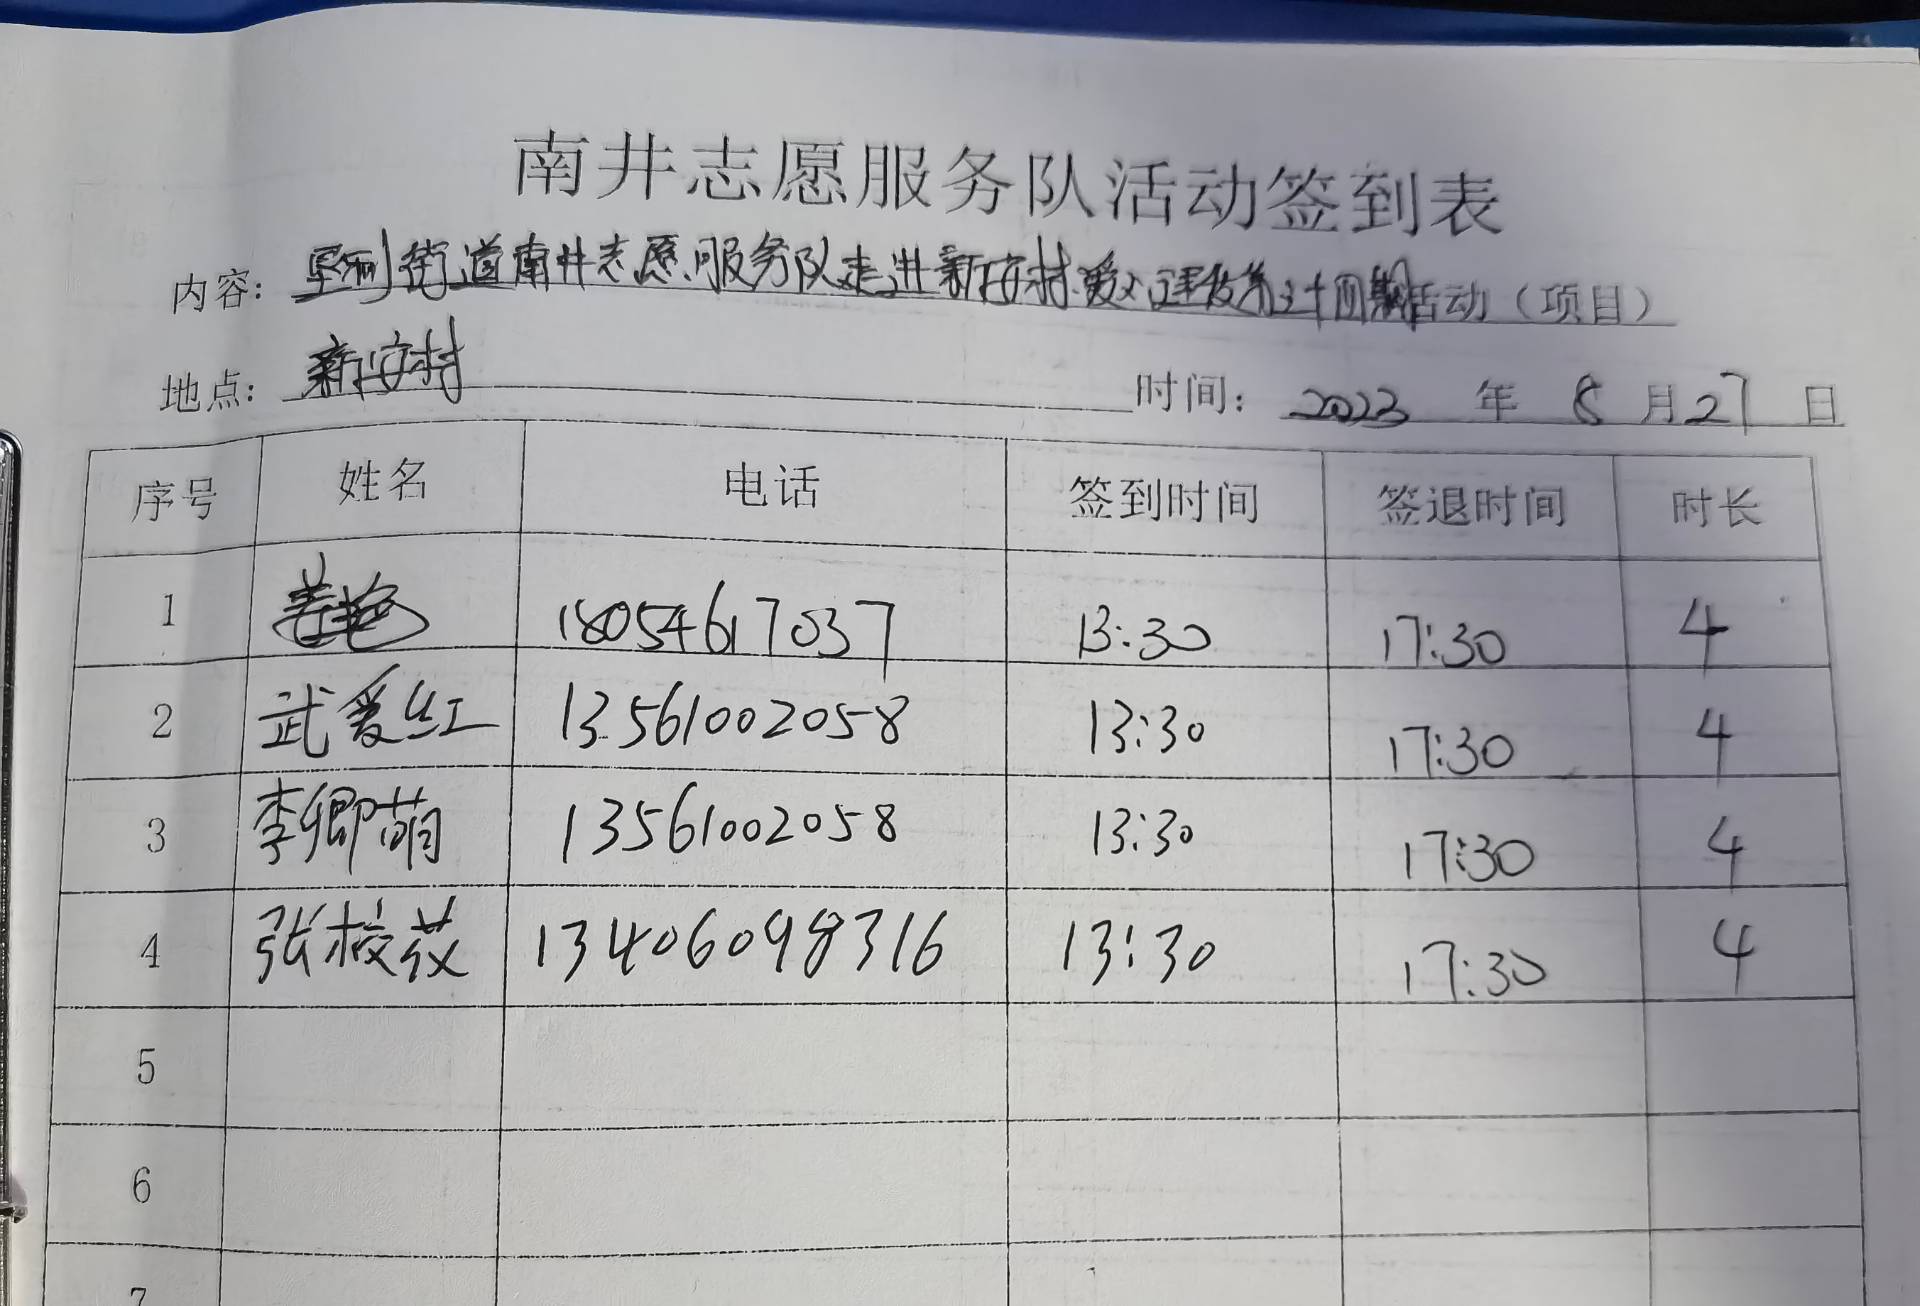 南井志愿服务队活动签到表
内容: 垦利街道南井志愿服务队走进新安村 第二十四期活动（项目）
地点: 新安村 时间: 2023 年 8 月 27 日
序号 姓名 电话 签到时间 签退时间 时长
1 姜艳 18054617037 13:30 17:30 4
2 武爱红 13561002058 13:30 17:30 4
3 李卿萌 13561002058 13:30 17:30 4
4 张校 13406098316 13:30 17:30 4
5
6
7